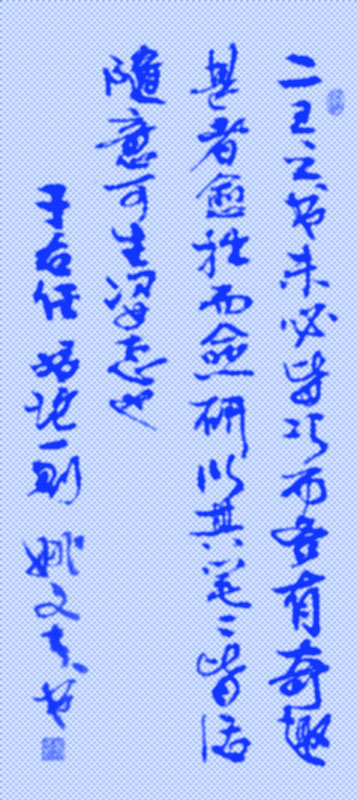 二王之书未必皆巧而各有奇趣
甚者愈拙而愈研以其笔々皆活
随意可生姿态也
于右任 一则 姚文